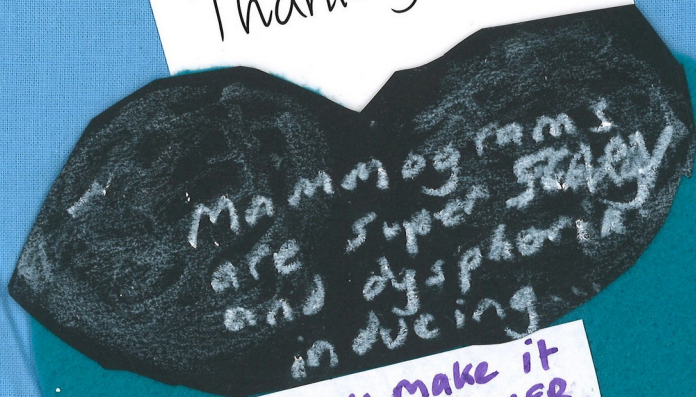 Mammograms
are super scary
and dysphoria
inducing
make it